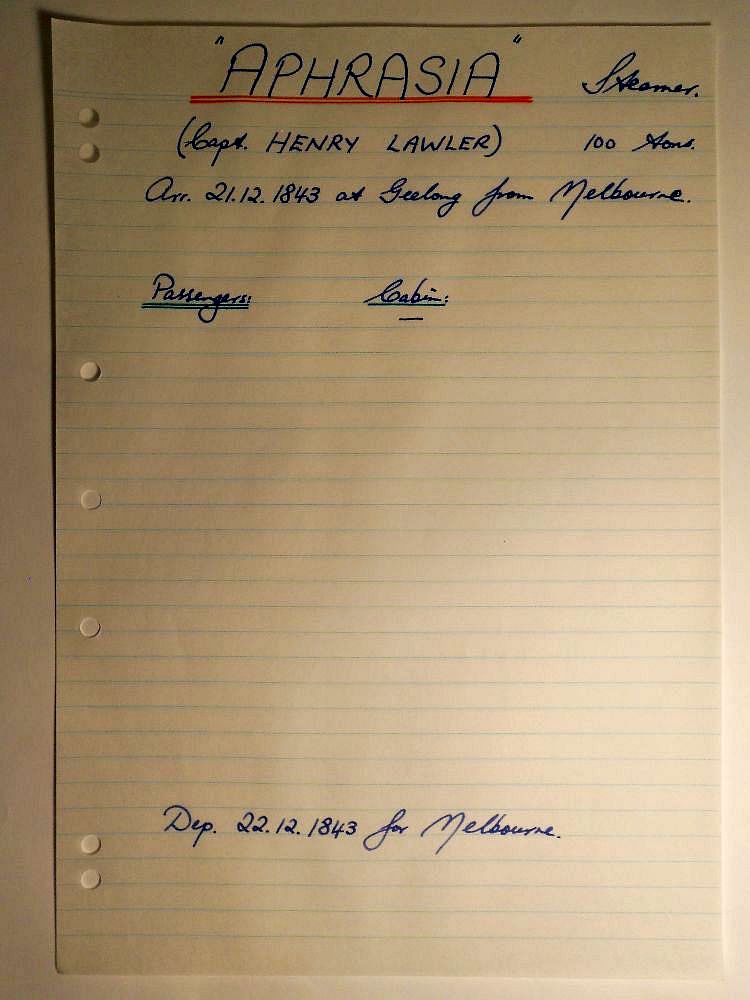 "APHRASIA" Steamer.
(Capt. HENRY LAWLER) 100 tons.
Arr. 21.12.1843 at Geelong from Melbourne.
Passengers: Cabin:
—
Dep. 22.12.1843 for Melbourne.